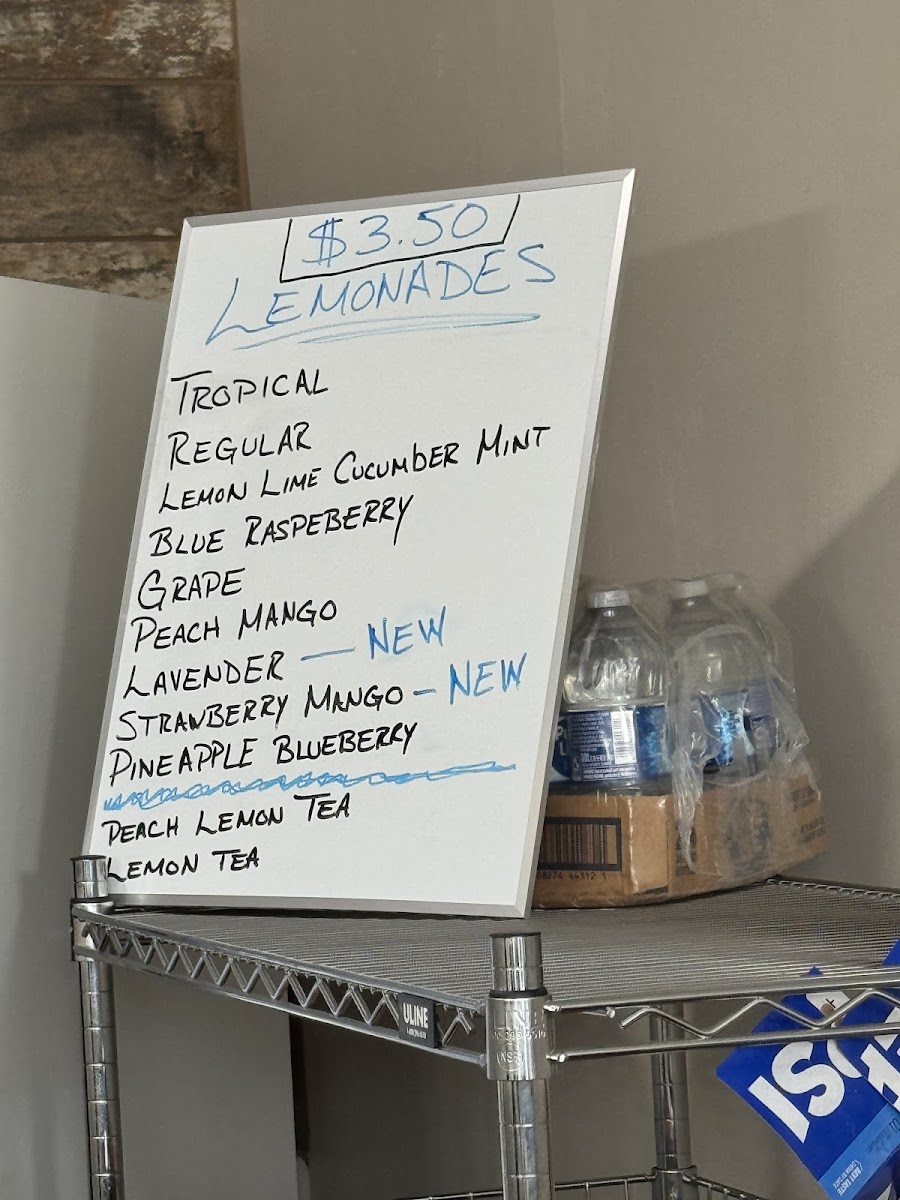 $3.50
LEMONADES
TROPICAL
REGULAR
LEMON LIME CUCUMBER MINT
BLUE RASPEBERRY
GRAPE
PEACH MANGO
LAVENDER — NEW
STRAWBERRY MANGO - NEW
PINEAPPLE BLUEBERRY
PEACH LEMON TEA
LEMON TEA
ULINE